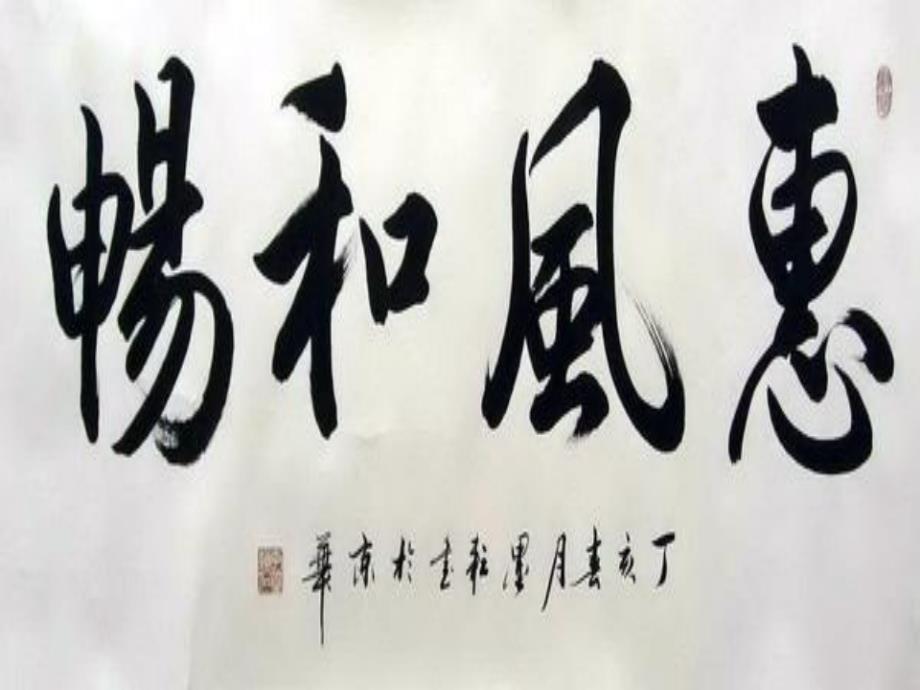 惠風和暢
丁亥春月墨耘书於京華